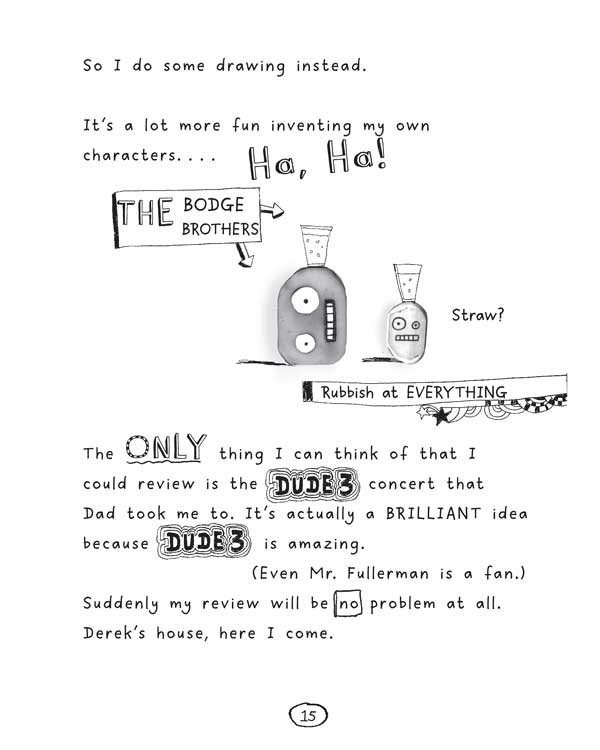 So I do some drawing instead.
It's a lot more fun inventing my own
characters. . . .
Ha, Ha!
THE BODGE
BROTHERS
Straw?
Rubbish at EVERYTHING
The ONLY thing I can think of that I
could review is the DUDE 3 concert that
Dad took me to. It's actually a BRILLIANT idea
because DUDE 3 is amazing.
(Even Mr. Fullerman is a fan.)
Suddenly my review will be no problem at all.
Derek's house, here I come.
15